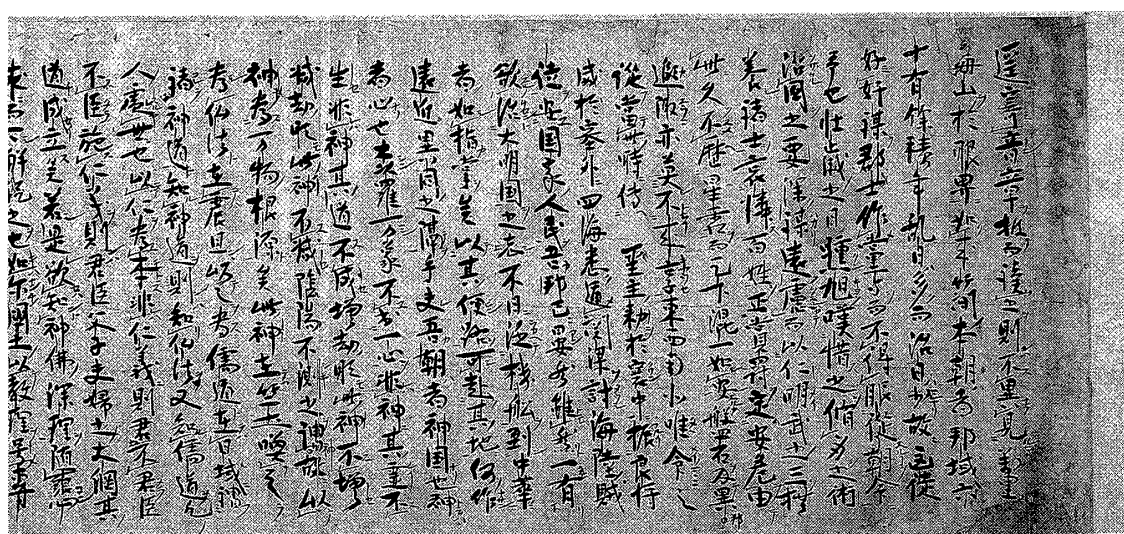 遙寄音書披而読之則不異見萬里
海山於眼界如来簡本朝者邦域六
十有餘積年乱日多而治日少故匡徒
好奸謀群士作党与而不得服従朝命
予也壮歳之日雖旭嘆惜之脩身之術
治国之要深謀遠慮而以仁明武之三
養諸士哀憐百姓正賞罰定安危由
此久不歴星霜而天下混一如安盤石及異邦
遐陬亦莫不来享東西南北唯命之
従當此時伝　聖主勅於寰中振良将
威於塞外四海悉通関梁討海陸賊
位安国家人民吾邦已安雖然一有
欲治大明国之志不日泛楼舩到中華
者如指掌矣以其便路可赴其地何作
遠近異同之隔乎夫吾朝者神国也神
者心也森羅万象不出一心非神其霊不
生非神其道不成増劫時此神不増
減劫時此神不減陰陽不測之謂神故以
神為万物根源矣此神在竺土喚之
為仏法在震旦以之為儒道在日域謂
諸神道知神道則知仏法又知儒道凡
人處世也以仁為本非仁義則君不君臣
不臣施仁義則君臣父子夫婦之大綱其
道成立矣若是欲知神佛深理随懇
求而可解説之也如爾国土以教理号専